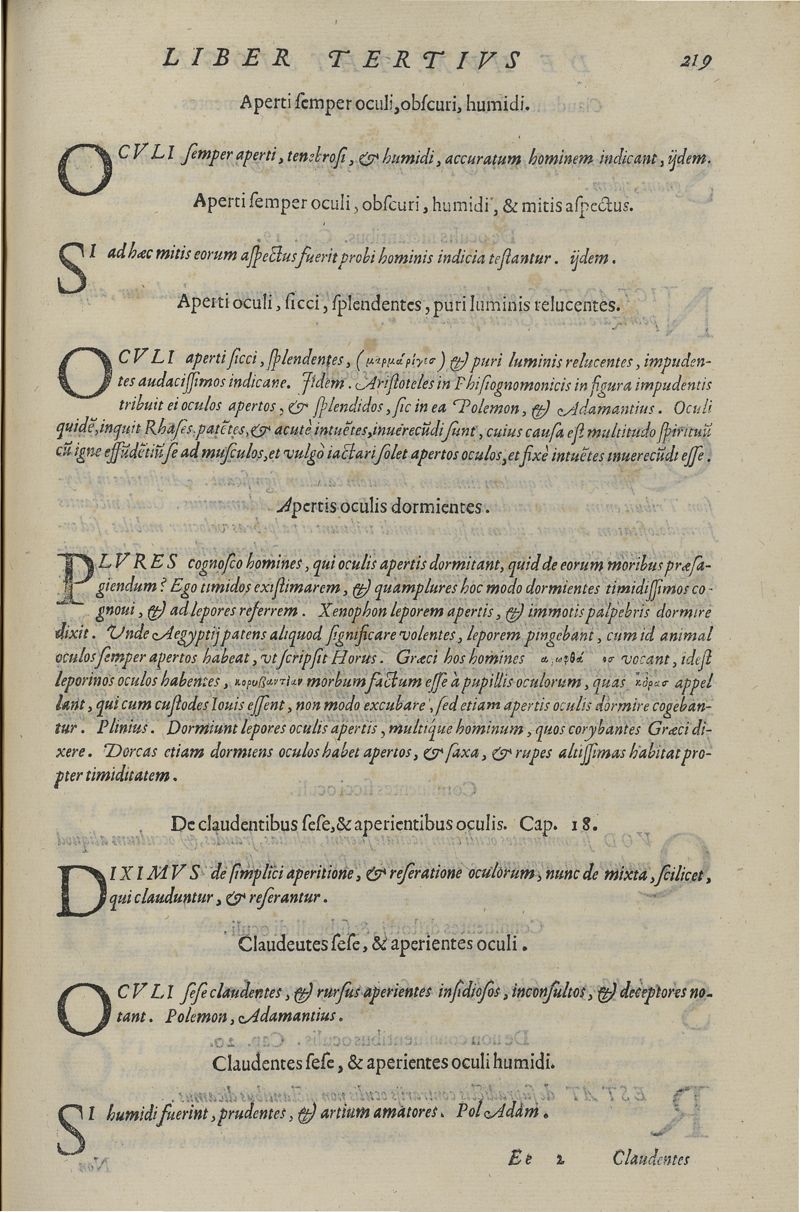 LIBER TERTIVS 219
Aperti ſemper oculi, obſcuri, humidi.
OCVLI ſemper aperti, tenebroſi, & humidi, accuratum hominem indicant, ijdem.
Aperti ſemper oculi, obſcuri, humidi, & mitis aſpectus.
SI ad hæc mitis eorum aſpectus fuerit probi hominis indicia teſtantur. ijdem.
Aperti oculi, ſicci, ſplendentes, puri luminis relucentes.
OCVLI aperti ſicci, ſplendentes, ( ) & puri luminis relucentes, impuden-
tes audaciſſimos indicane. Jidem. Ariſtoteles in Phiſiognomonicis in figura impudentis
tribuit ei oculos apertos, & ſplendidos, ſic in ea Polemon, & Adamantius. Oculi
quidē, inquit Rhaſes, patētes, & acutè intuētes, inuerecūdi ſunt, cuius cauſa eſt multitudo ſpirituū
cū igne effūdētiū ſe ad muſculos, et vulgò iactari ſolet apertos oculos, et fixè intuētes inuerecūdi eſſe.
Apertis oculis dormientes.
PLVRES cognoſco homines, qui oculis apertis dormitant, quid de eorum moribus præſa-
giendum? Ego timidos exiſtimarem, & quamplures hoc modo dormientes timidiſſimos co-
gnoui, & ad lepores referrem. Xenophon leporem apertis, & immotis palpebris dormire
dixit. Vnde Aegyptij patens aliquod ſignificare volentes, leporem pingebant, cum id animal
oculos ſemper apertos habeat, vt ſcripſit Horus. Græci hos homines vocant, ideſt
leporinos oculos habentes, κορυβαντιᾶν morbum factum eſſe à pupillis oculorum, quas κόρασ appel
lant, qui cum cuſtodes Iouis eſſent, non modo excubare, ſed etiam apertis oculis dormire cogeban-
tur. Plinius. Dormiunt lepores oculis apertis, multique hominum, quos corybantes Græci di-
xere. Dorcas etiam dormiens oculos habet apertos, & ſaxa, & rupes altiſſimas habitat pro-
pter timiditatem.
De claudentibus ſeſe, & aperientibus oculis. Cap. 18.
DIXIMVS de ſimplici aperitione, & reſeratione oculorum, nunc de mixta, ſcilicet,
qui clauduntur, & reſerantur.
Claudeutes ſeſe, & aperientes oculi.
OCVLI ſeſe claudentes, & rurſus aperientes inſidioſos, inconſultos, & deceptores no-
tant. Polemon, Adamantius.
Claudentes ſeſe, & aperientes oculi humidi.
SI humidi fuerint, prudentes, & artium amatores. Pol Adam.
Ee 2 Claudentes